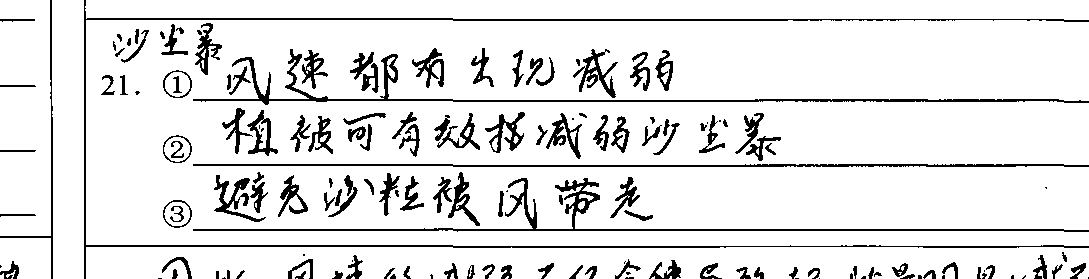 沙尘暴
21. ① 风速都有出现减弱
② 植被可有效指减弱沙尘暴
③ 避免沙粒被风带走